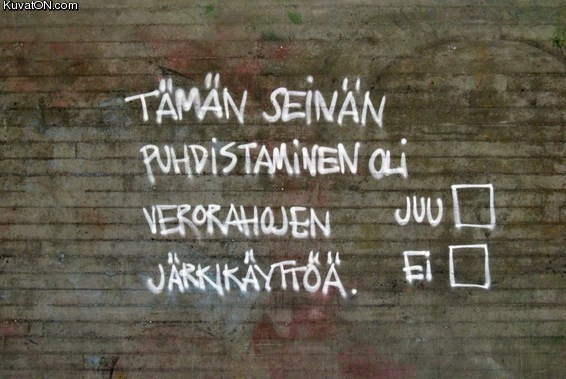 KuvatON.com
TÄMÄN SEINÄN
PUHDISTAMINEN OLI
VERORAHOJEN JUU
JÄRKIKÄYTTÖÄ. Ei